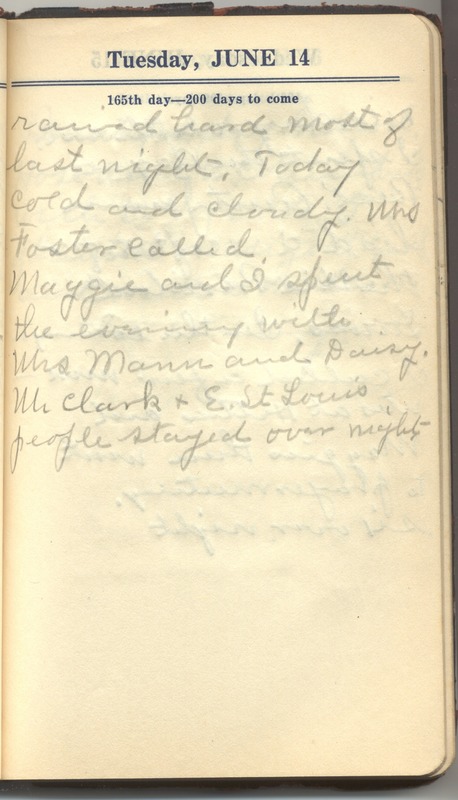 Tuesday, JUNE 14
165th day—200 days to come
rained hard most of
last night. Today
cold and cloudy. Mrs
Foster called.
Maggie and I spent
the evening with
Mrs Mann and Daisy.
Mr Clark + E. St Louis
people stayed over night